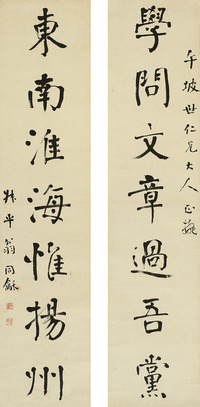 午坡世仁兄大人正
學問文章過吾黨
東南淮海惟揚州
叔平翁同龢